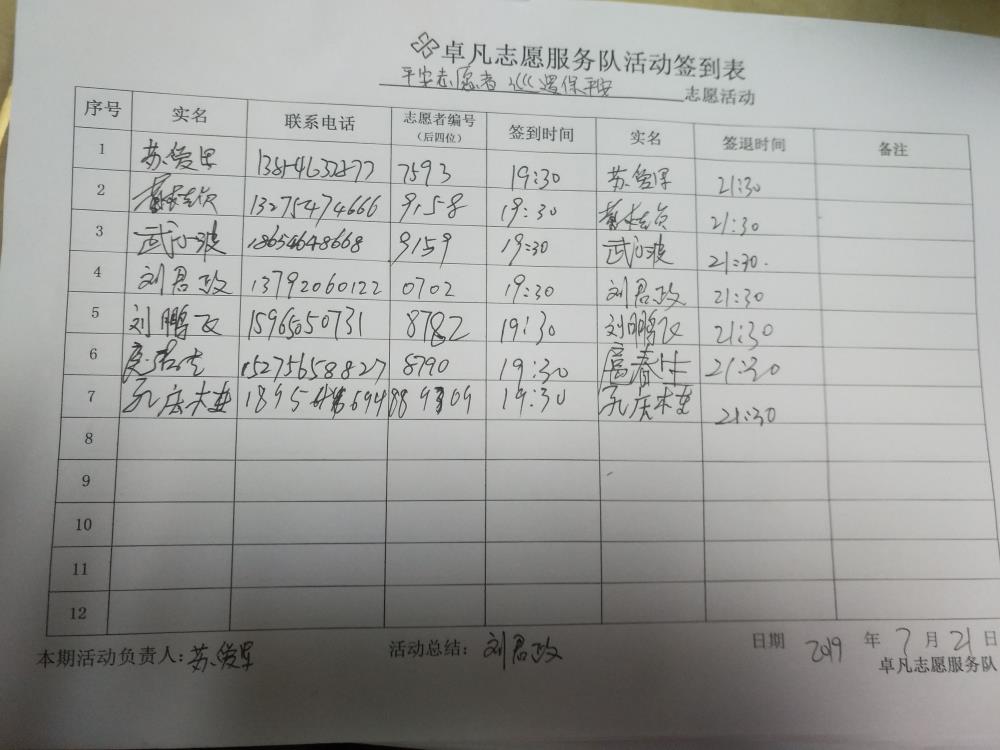 卓凡志愿服务队活动签到表
平安志愿者 巡逻保平安 志愿活动
序号 实名 联系电话 志愿者编号（后四位） 签到时间 实名 签退时间 备注
1 苏爱军 7593 19:30 苏爱军 21:30
2 13275474666 9158 19:30 21:30
3 武小波 18654648668 9159 19:30 武小波 21:30.
4 刘君政 13792060122 0702 19:30 刘君政 21:30
5 刘鹏飞 15965050731 8782 19:30 刘鹏飞 21:30
6 15275658827 8790 19:30 21:30
7 19:30 21:30
8
9
10
11
12
本期活动负责人：苏爱军 活动总结：刘君政 日期 2019 年 7 月 21 日
卓凡志愿服务队